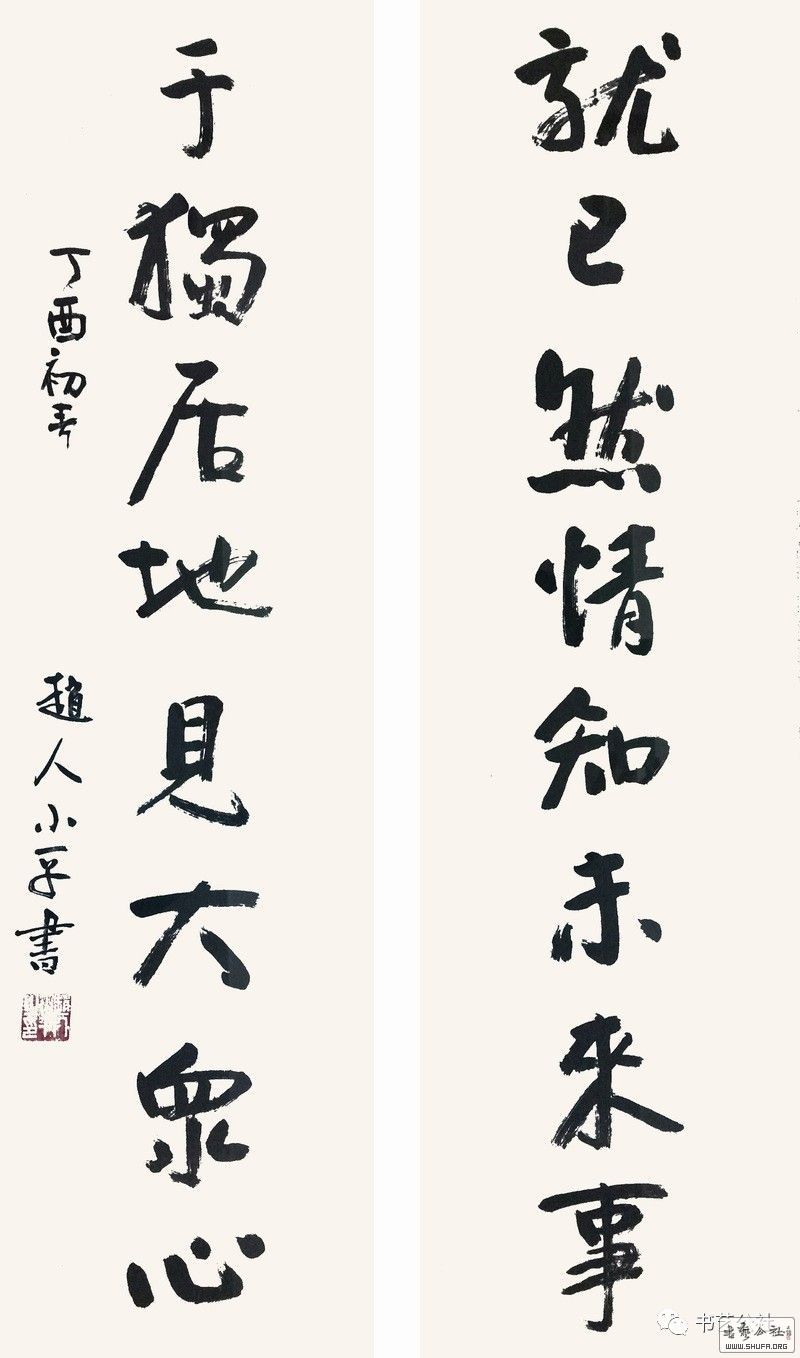 就已然情知未來事
于獨居地見大眾心
丁酉初春
趙人小平書
书艺公社
书艺公社
WWW.SHUFA.ORG